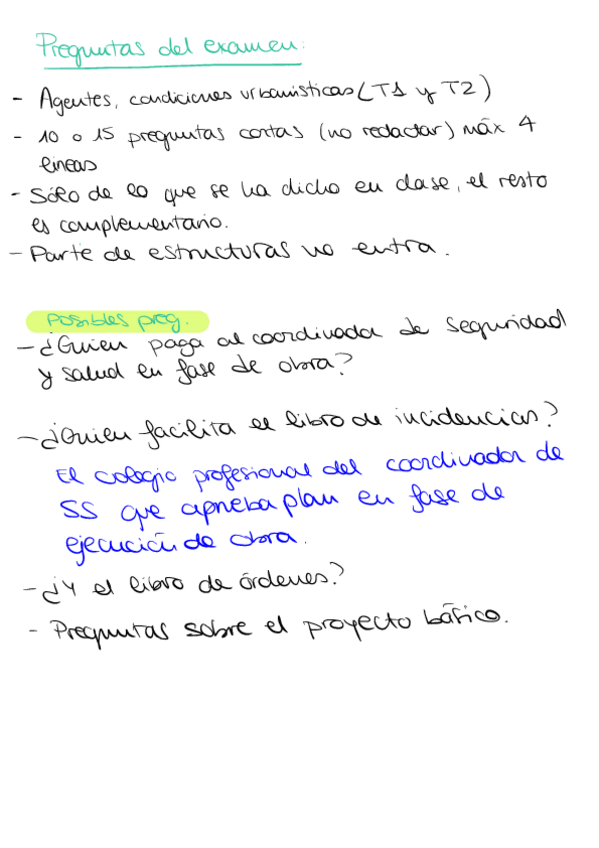 Preguntas del examen:
- Agentes, condiciones urbanísticas (T1 y T2)
- 10 o 15 preguntas cortas (no redactar) máx 4
líneas
- Sólo de lo que se ha dicho en clase, el resto
es complementario.
- Parte de estructuras no entra.
Posibles preg.
- ¿Quien paga al coordinador de seguridad
y salud en fase de obra?
- ¿Quien facilita el libro de incidencias?
El colegio profesional del coordinador de
SS que aprueba plan en fase de
ejecución de obra.
- ¿Y el libro de órdenes?
- Preguntas sobre el proyecto básico.